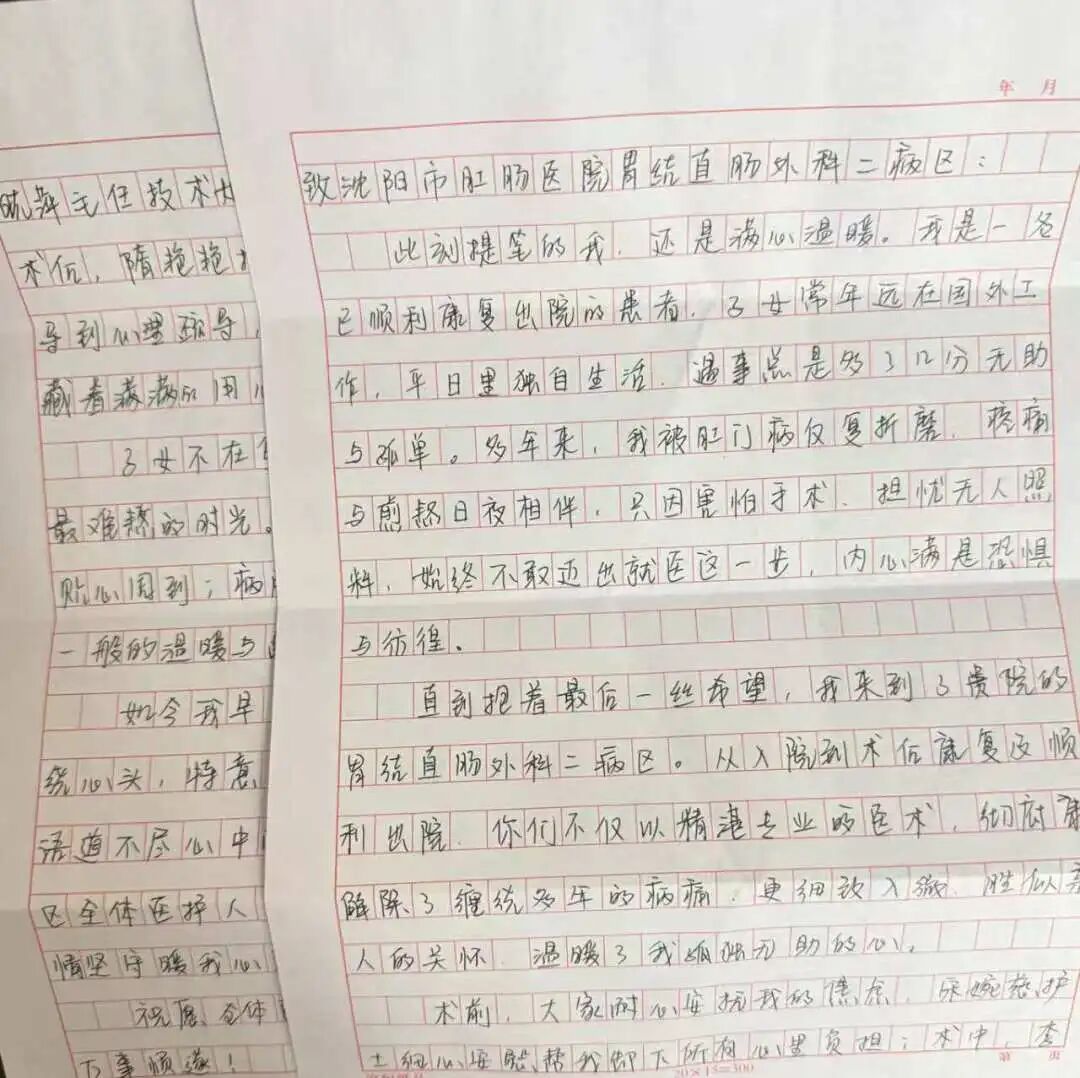 年 月
致沈阳市肛肠医院胃结直肠外科二病区：
此刻提笔的我，还是满心温暖。我是一名
已顺利康复出院的患者，子女常年远在国外工
作，平日里独自生活，遇事总是多了几分无助
与孤单。多年来，我被肛门病反复折磨，疼痛
与煎熬日夜相伴，只因害怕手术、担忧无人照
料，始终不敢迈出就医这一步，内心满是恐惧
与彷徨。
直到抱着最后一丝希望，我来到了贵院的
胃结直肠外科二病区。从入院到术后康复及顺
利出院，你们不仅以精湛专业的医术，彻底
解除了缠绕多年的病痛，更细致入微、胜似亲
人的关怀，温暖了我孤独无助的心。
术前，大家耐心安抚我的焦虑，护
士细心安慰帮我卸下所有心里负担；术中，李
20×15=300
第 页
主任技术
术后，隋艳艳
导到心理疏导，
藏着满满的用
子女不在
最难熬的时光。
贴心周到；病
一般的温暖与
如今我早
绕心头，特意
语道不尽心中
区全体医护人
情坚守暖我心
祝愿全体
万事顺遂！